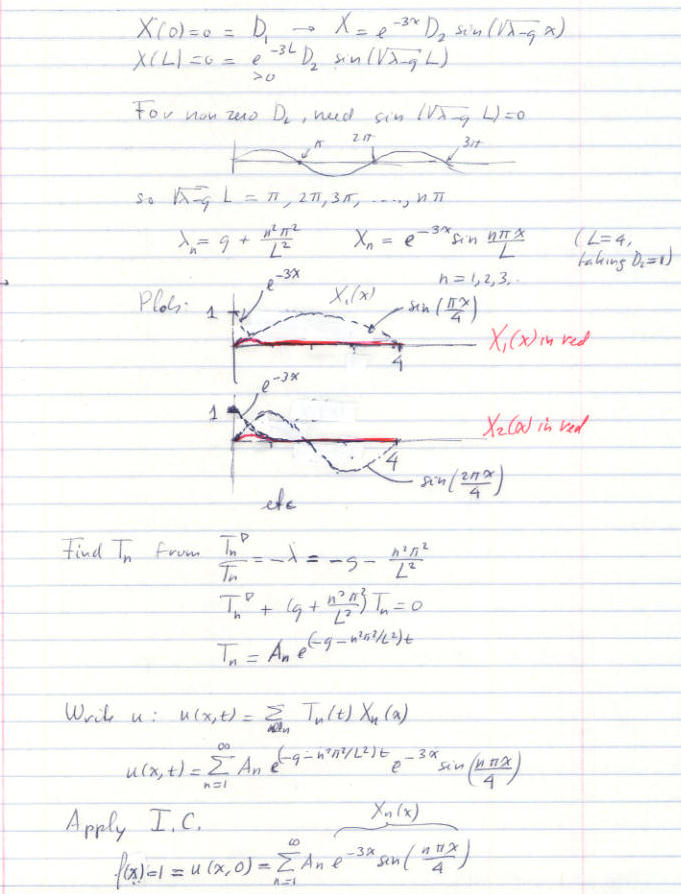 X(0)=0 = D₁ → X = e^{-3x} D₂ sin(√λ-9 x)
X(L)=0 = e^{-3L} D₂ sin(√λ-9 L)
>0
For non zero D₂, need sin(√λ-9 L)=0
π 2π 3π
so √λ-9 L = π, 2π, 3π, ....., nπ
λₙ = 9 + n²π²/L² Xₙ = e^{-3x} sin nπx/L (L=4, taking D₂=1)
n=1,2,3,..
Plots:
e^{-3x}
X₁(x)
sin(πx/4)
1
4
X₁(x) in red
e^{-3x}
1
4
X₂(x) in red
sin(2πx/4)
etc
Find Tₙ from Tₙ'/Tₙ = -λ = -9 - n²π²/L²
Tₙ' + (9 + n²π²/L²) Tₙ = 0
Tₙ = Aₙ e^{(-9-n²π²/L²)t}
Write u: u(x,t) = Σ Tₙ(t) Xₙ(x)
u(x,t) = Σ_{n=1}^{∞} Aₙ e^{(-9-n²π²/L²)t} e^{-3x} sin(nπx/4)
Apply I.C. Xₙ(x)
f(x)=1 = u(x,0) = Σ_{n=1}^{∞} Aₙ e^{-3x} sin(nπx/4)